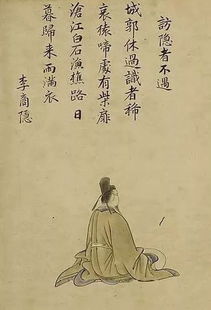 訪隱者不遇
城郭休過識者稀
哀猿啼處有柴扉
滄江白石漁樵路日
暮歸来雨滿衣
李商隱